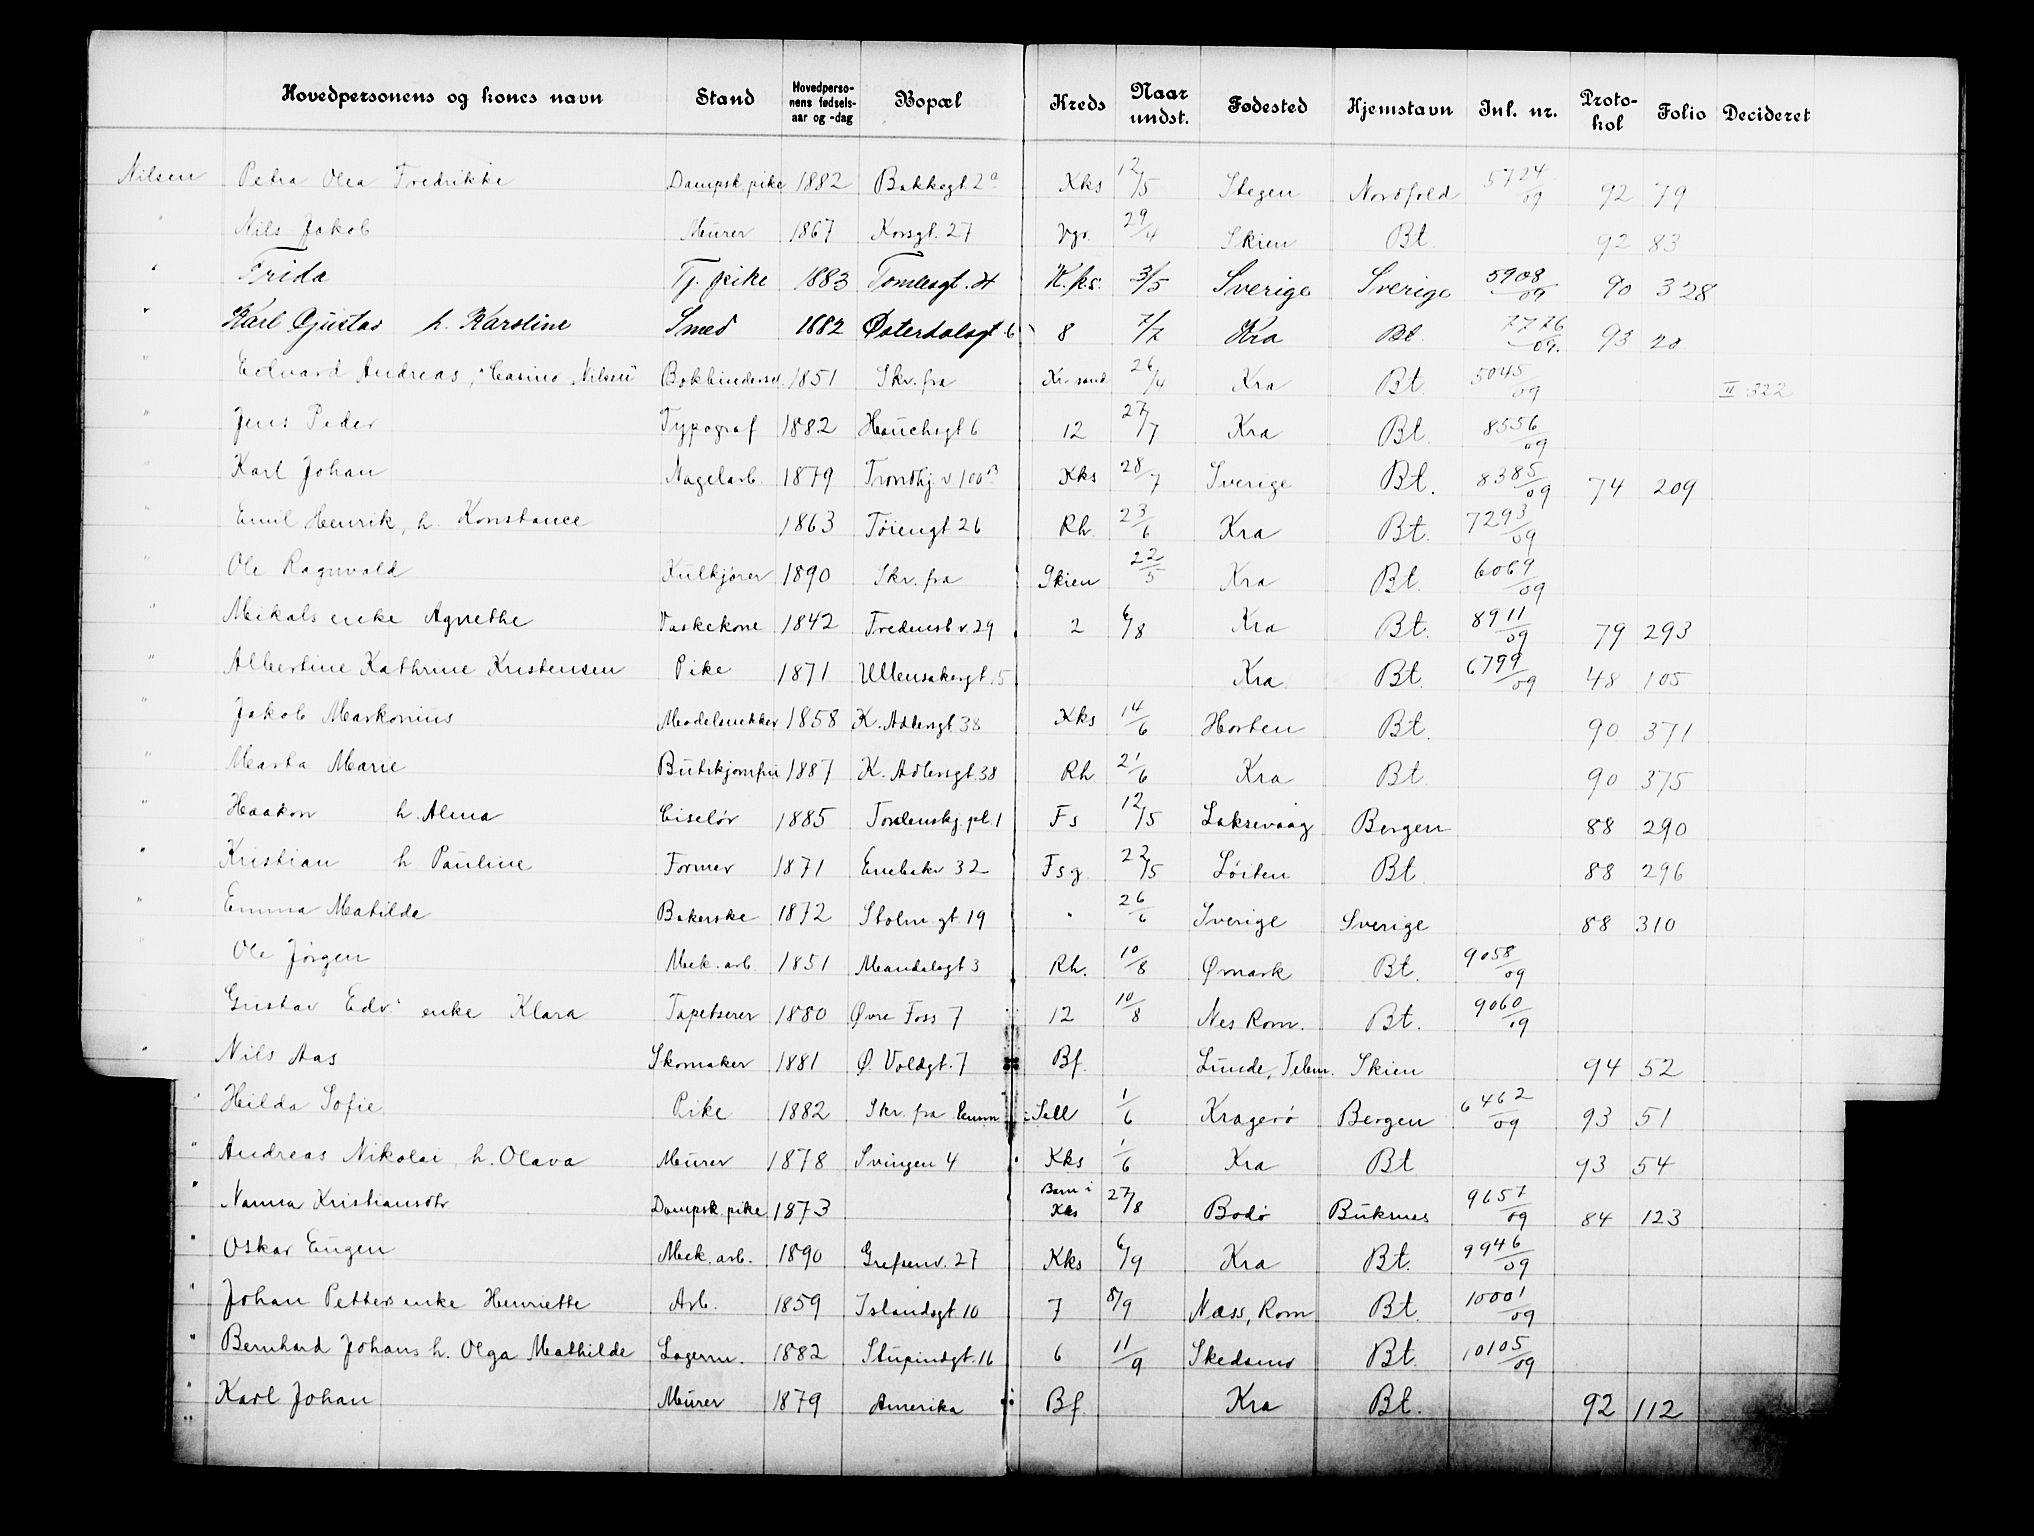 Hovedpersonens og kones navn Stand Hovedpersonens fødselsaar og -dag Bopæl Kreds Naar undst. Fødested Hjemstavn Inl. nr. Protokol Folio Decideret
Nilsen Petra Olea Fredrikke Dampsk.pike 1882 Bakkegt. 2a Kks 12/5 Stegen Nordfold 5724/09 92 79
" Nils Jakob Murer 1867 Korsgt. 27 Vgr. 29/4 Skien Bt. 92 83
" Frida Tj. pike 1883 Tomtegt. 4 K.ks. 3/5 Sverige Sverige 5908/09 90 328
" Karl Gustav h. Karoline Smed 1882 Østerdalsgt. 6 8 7/7 Kra Bt. 7776/09. 93 20
" Edvard Andreas, "Casino Nilsen" Bokbindersv. 1851 Skr. fra Kr.sand 26/4 Kra Bt. 5045/09 II 322
" Jens Peder Typograf 1882 Hauchsgt 6 12 27/7 Kra Bt. 8556/09
" Karl Johan Nagelarb. 1879 Trondhj.v. 100B Kks 28/7 Sverige Bt. 8385/09 74 209
" Emil Henrik, h. Konstance 1863 Tøiengt 26 Rh. 23/6 Kra Bt. 7293/09
" Ole Ragnvald Kulkjører 1890 Skr. fra Skien 22/5 Kra Bt. 6069/09
" Mikals enke Agnethe Vaskekone 1842 Fredensb.v. 29 2 6/8 Kra Bt. 8911/09 79 293
" Albertine Kathrine Kristensen Pike 1871 Ullensakergt. 15 Kra Bt. 6799/09 48 105
" Jakob Markonius Modelsnekker 1858 K. Adlersgt. 38 Kks 14/6 Horten Bt. 90 371
" Marta Marie Butikjomfru 1887 K. Adlersgt. 38 Rh 21/6 Kra Bt. 90 375
" Haakon h. Alma Ciselør 1885 Tordenskj. pl. 1 Fs 12/5 Laksevaag Bergen 88 290
" Kristian h Pauline Former 1871 Enebakv 32 Fsg. 22/5 Løiten Bt. 88 296
" Emma Matilde Bakerske 1872 Stolm.gt. 19 " 26/6 Sverige Sverige 88 310
" Ole Jørgen Mek. arb. 1851 Mandalsgt 3 Rh. 10/8 Ømark Bt. 9058/09
Gustav Edv. enke Klara Tapetserer 1880 Øvre Foss 7 12 10/8 Nes Rom. Bt. 9060/09
" Nils Aas Skomaker 1881 Ø. Voldgt. 7 Bf. Lunde, Telem. Skien 94 52
" Hilda Sofie Pike 1882 Skr. fra Sell 1/6 Kragerø Bergen 6462/09 93 51
" Andreas Nikolai h. Olava Murer 1878 Svingen 4 Kks 1/6 Kra Bt 93 54
" Nanna Kristiansdtr Dampsk.pike 1873 Barn i Kks 27/8 Bodø Buksnes 9657/09 84 123
" Oskar Eugen Mek. arb. 1890 Grefsenv. 27 Kks 6/9 Kra Bt. 9946/09
" Johan Petters enke Henriette Arb. 1859 Islandsgt. 10 7 8/9 Næss, Rom Bt. 10001/09
" Bernhard Johans h. Olga Mathilde Lagerm. 1882 Stupindgt. 16 6 11/9 Skedsmo Bt. 10105/09
" Karl Johan Murer 1879 Amerika Bf. Kra Bt. 92 112
"